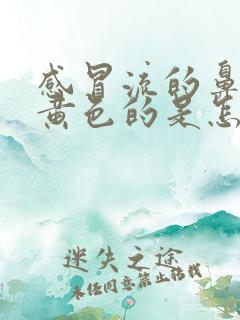 感冒流的鼻
黄色的是怎
迷失之途
未经同意禁止转载